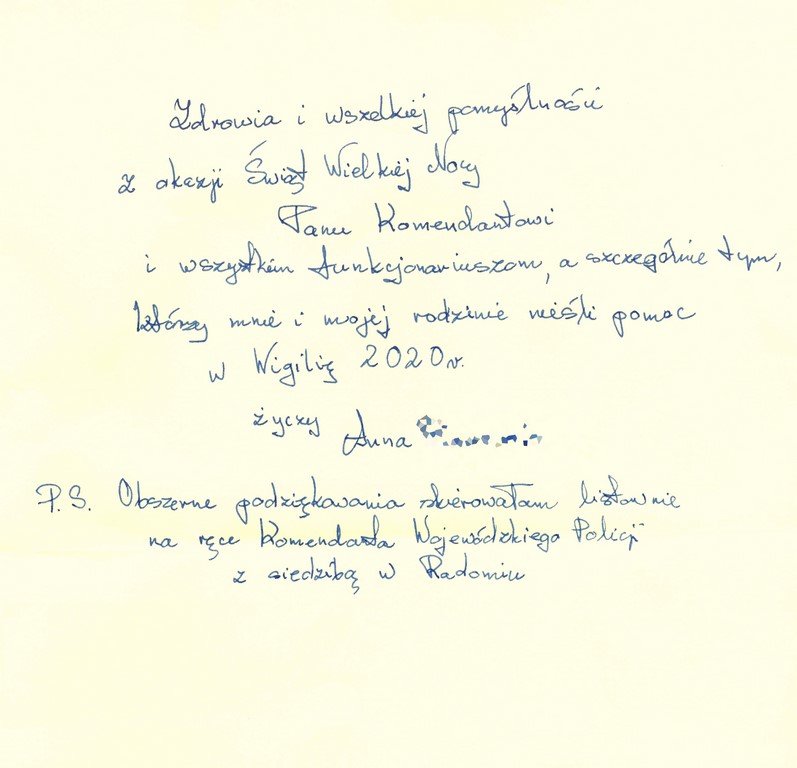 Zdrowia i wszelkiej pomyślności
z okazji Świąt Wielkiej Nocy
Panu Komendantowi
i wszystkim funkcjonariuszom, a szczególnie tym,
którzy mnie i mojej rodzinie nieśli pomoc
w Wigilię 2020r.
życzy Anna
P.S. Obszerne podziękowania skierowałam listownie
na ręce Komendanta Wojewódzkiego Policji
z siedzibą w Radomiu